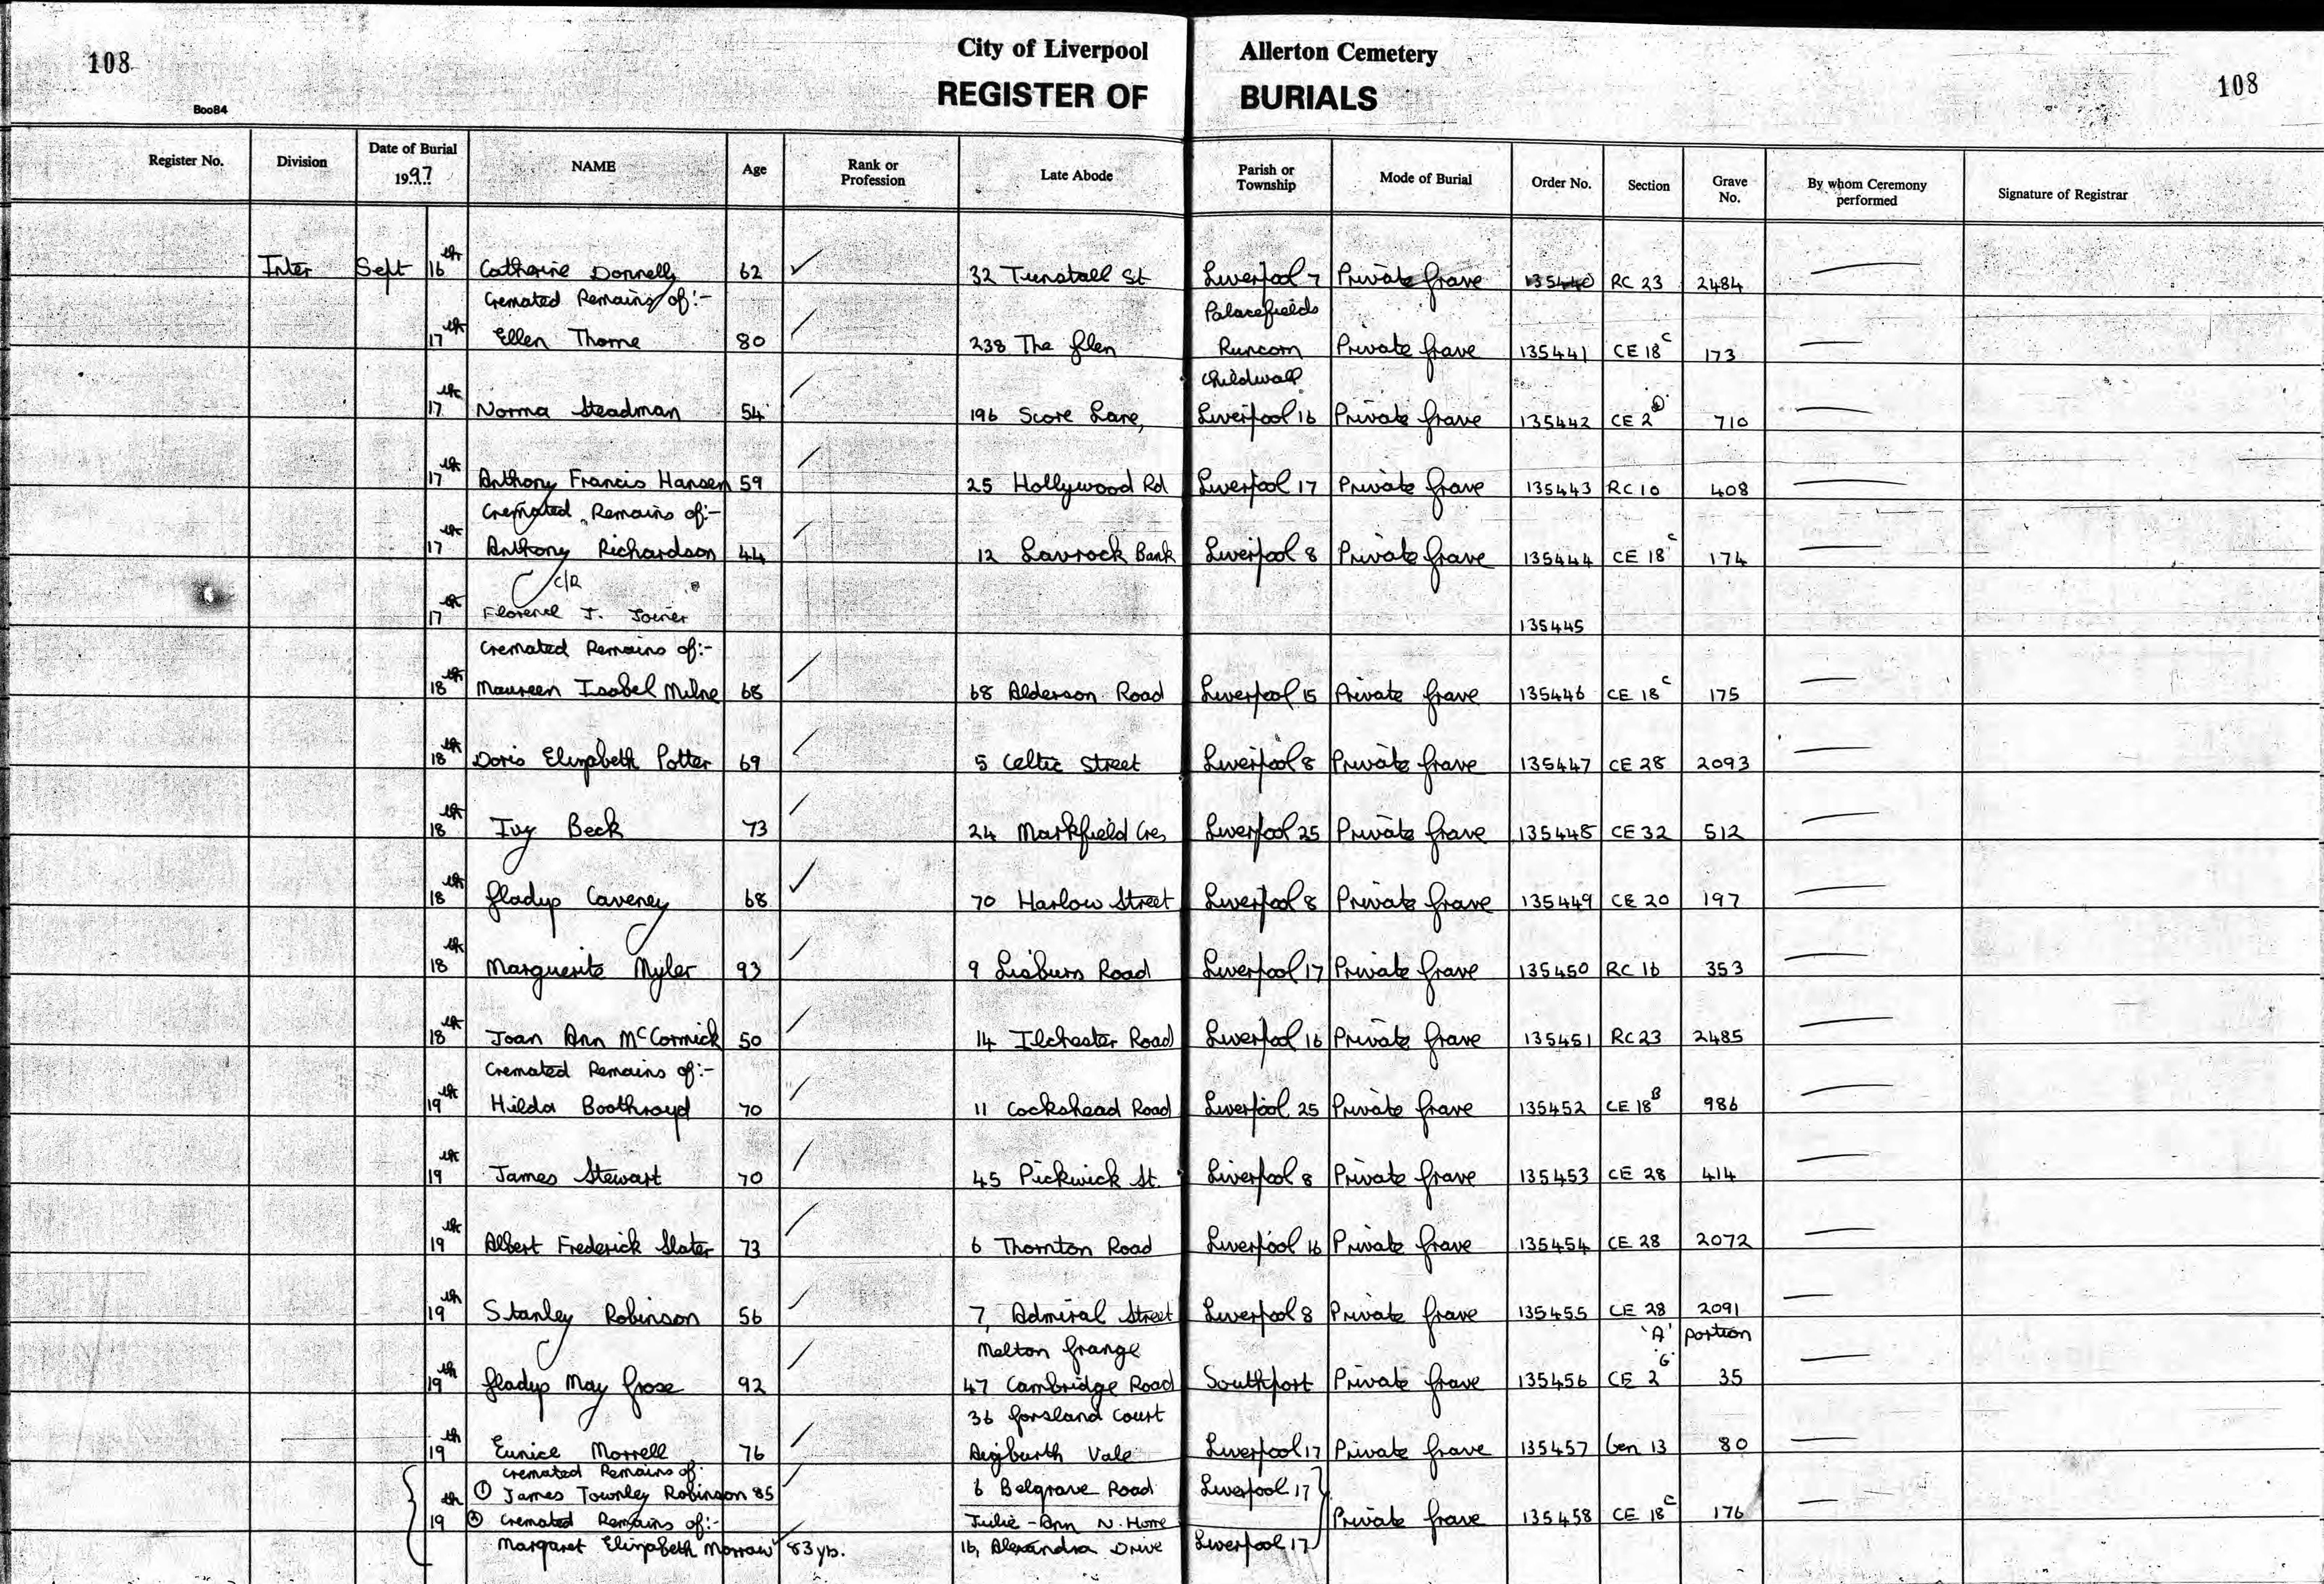 108 City of Liverpool Allerton Cemetery 108
Boo84 REGISTER OF BURIALS
Register No. Division Date of Burial 1997 NAME Age Rank or Profession Late Abode Parish or Township Mode of Burial Order No. Section Grave No. By whom Ceremony performed Signature of Registrar
Inter Sept 16th Catherine Donnelly 62 ✓ 32 Tunstall St Liverpool 7 Private Grave 135440 RC 23 2484 —
Cremated Remains of:- Palacefields
17th Ellen Thorne 80 / 238 The Glen Runcorn Private Grave 135441 CE 18 C 173 —
Childwall
17th Norma Steadman 54 / 196 Score Lane, Liverpool 16 Private Grave 135442 CE 2 D 710 —
17th Anthony Francis Hansen 59 / 25 Hollywood Rd Liverpool 17 Private Grave 135443 RC 10 408 —
Cremated Remains of:-
17th Anthony Richardson 44 / 12 Lavrock Bank Liverpool 8 Private Grave 135444 CE 18 C 174 —
C/R
17th Florence J. Joiner 135445
Cremated Remains of:-
18th Maureen Isobel Milne 68 / 68 Alderson Road Liverpool 15 Private Grave 135446 CE 18 C 175 —
18th Doris Elizabeth Potter 69 / 5 Celtic Street Liverpool 8 Private Grave 135447 CE 28 2093 —
18th Ivy Beck 73 / 24 Markfield Cres Liverpool 25 Private Grave 135448 CE 32 512 —
18th Gladys Caveney 68 ✓ 70 Harlow Street Liverpool 8 Private Grave 135449 CE 20 197 —
18th Marguerite Myler 93 / 9 Lisburn Road Liverpool 17 Private Grave 135450 RC 16 353 —
18th Joan Ann McCormick 50 / 14 Ilchester Road Liverpool 16 Private Grave 135451 RC 23 2485 —
Cremated Remains of:-
19th Hilda Boothroyd 70 / 11 Cockshead Road Liverpool 25 Private Grave 135452 CE 18 B 986 —
19th James Stewart 70 / 45 Pickwick St. Liverpool 8 Private Grave 135453 CE 28 414 —
19th Albert Frederick Slater 73 / 6 Thornton Road Liverpool 16 Private Grave 135454 CE 28 2072 —
19th Stanley Robinson 56 / 7, Admiral Street Liverpool 8 Private Grave 135455 CE 28 2091 —
Melton Grange 'A' portion
19th Gladys May Grose 92 / 47 Cambridge Road Southport Private Grave 135456 CE 2 'G' 35 —
36 Gorsland Court
19th Eunice Morrell 76 / Aigburth Vale Liverpool 17 Private Grave 135457 Gen 13 80 —
Cremated Remains of:
① James Townley Robinson 85 / 6 Belgrave Road Liverpool 17
19th ② Cremated Remains of:- Julie-Ann N. Home Private Grave 135458 CE 18 C 176 —
Margaret Elizabeth Morrow 83 yrs. 16, Alexandra Drive Liverpool 17